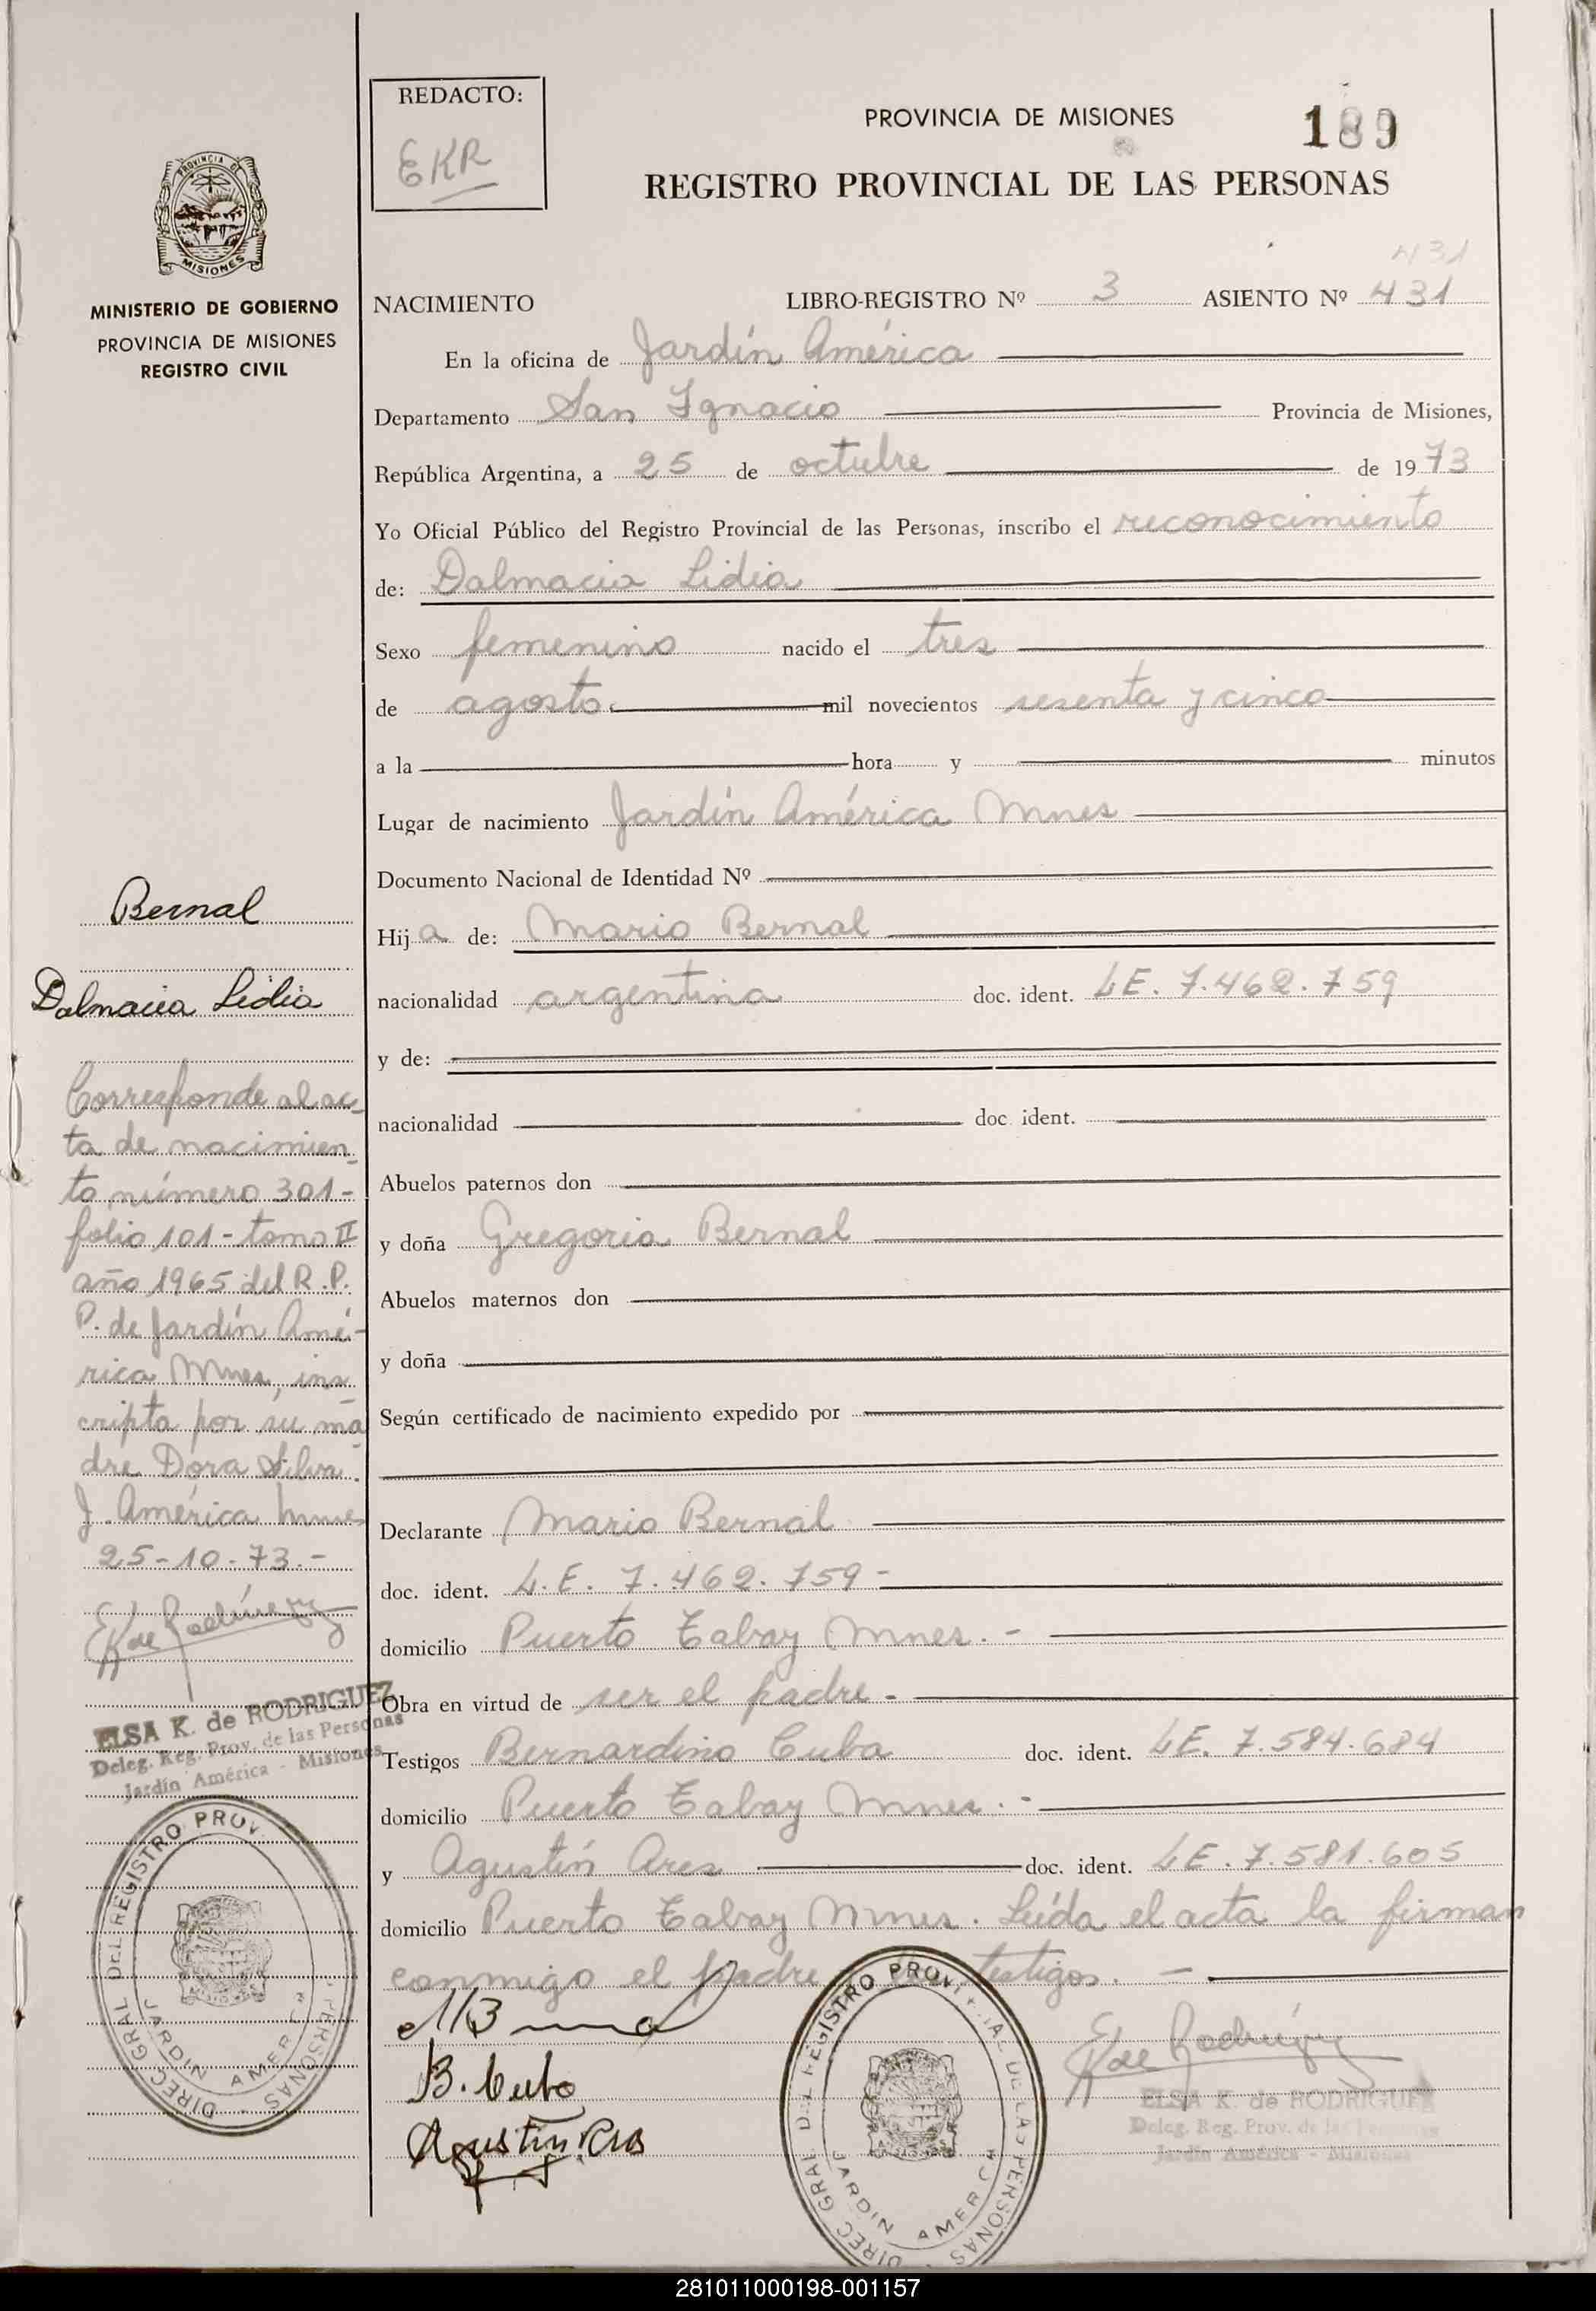 REDACTO:
EKR
PROVINCIA DE MISIONES
189
REGISTRO PROVINCIAL DE LAS PERSONAS
PROVINCIA DE
MISIONES
MINISTERIO DE GOBIERNO
PROVINCIA DE MISIONES
REGISTRO CIVIL
431
NACIMIENTO LIBRO-REGISTRO Nº 3 ASIENTO Nº 431
En la oficina de Jardín América
Departamento San Ignacio Provincia de Misiones,
República Argentina, a 25 de octubre de 1973
Yo Oficial Público del Registro Provincial de las Personas, inscribo el reconocimiento
de: Dalmacia Lidia
Sexo femenino nacido el tres
de agosto mil novecientos sesenta y cinco
a la hora y minutos
Lugar de nacimiento Jardín América Mnes
Documento Nacional de Identidad Nº
Hija de: Mario Bernal
nacionalidad argentina doc. ident. LE. 7.462.759
y de:
nacionalidad doc. ident.
Abuelos paternos don
y doña Gregoria Bernal
Abuelos maternos don
y doña
Según certificado de nacimiento expedido por
Declarante Mario Bernal
doc. ident. L.E. 7.462.759 -
domicilio Puerto Tabay Mnes. -
Obra en virtud de ser el padre -
Testigos Bernardino Cuba doc. ident. LE. 7.584.684
domicilio Puerto Tabay Mnes. -
y Agustín Ares doc. ident. LE. 7.581.605
domicilio Puerto Tabay Mnes. Leída el acta la firman
conmigo el padre testigos. -
B. Cuba
Agustin Ares
E K de Rodríguez
ELSA K. de RODRIGUEZ
Deleg. Reg. Prov. de las Personas
Jardín América - Misiones
DIREC GRAL DEL REGISTRO PROVINCIAL DE LAS PERSONAS
JARDIN AMERICA
Bernal
Dalmacia Lidia
Corresponde al ac-
ta de nacimien-
to número 301-
folio 101 - tomo II
año 1965 del R.P.
P. de Jardín Amé-
rica Mnes, ins-
cripta por su ma
dre Dora Silva.
J. América Mnes
25-10-73.-
E K de Rodríguez
ELSA K. de RODRIGUEZ
Deleg. Reg. Prov. de las Personas
Jardín América - Misiones
DIREC GRAL DEL REGISTRO PROV. PERSONAS
JARDIN AMERICA
281011000198-001157